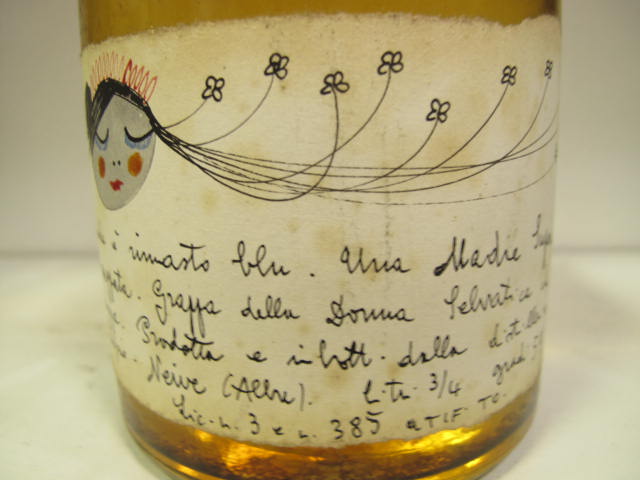 è rimasto blu. Una Madre
Grappa della Donna Selvatica
Prodotta e imbott. dalla
Neive (Alba). Ltr. 3/4 grad.
Lic. n. 3 e n. 385 UTIF TO.